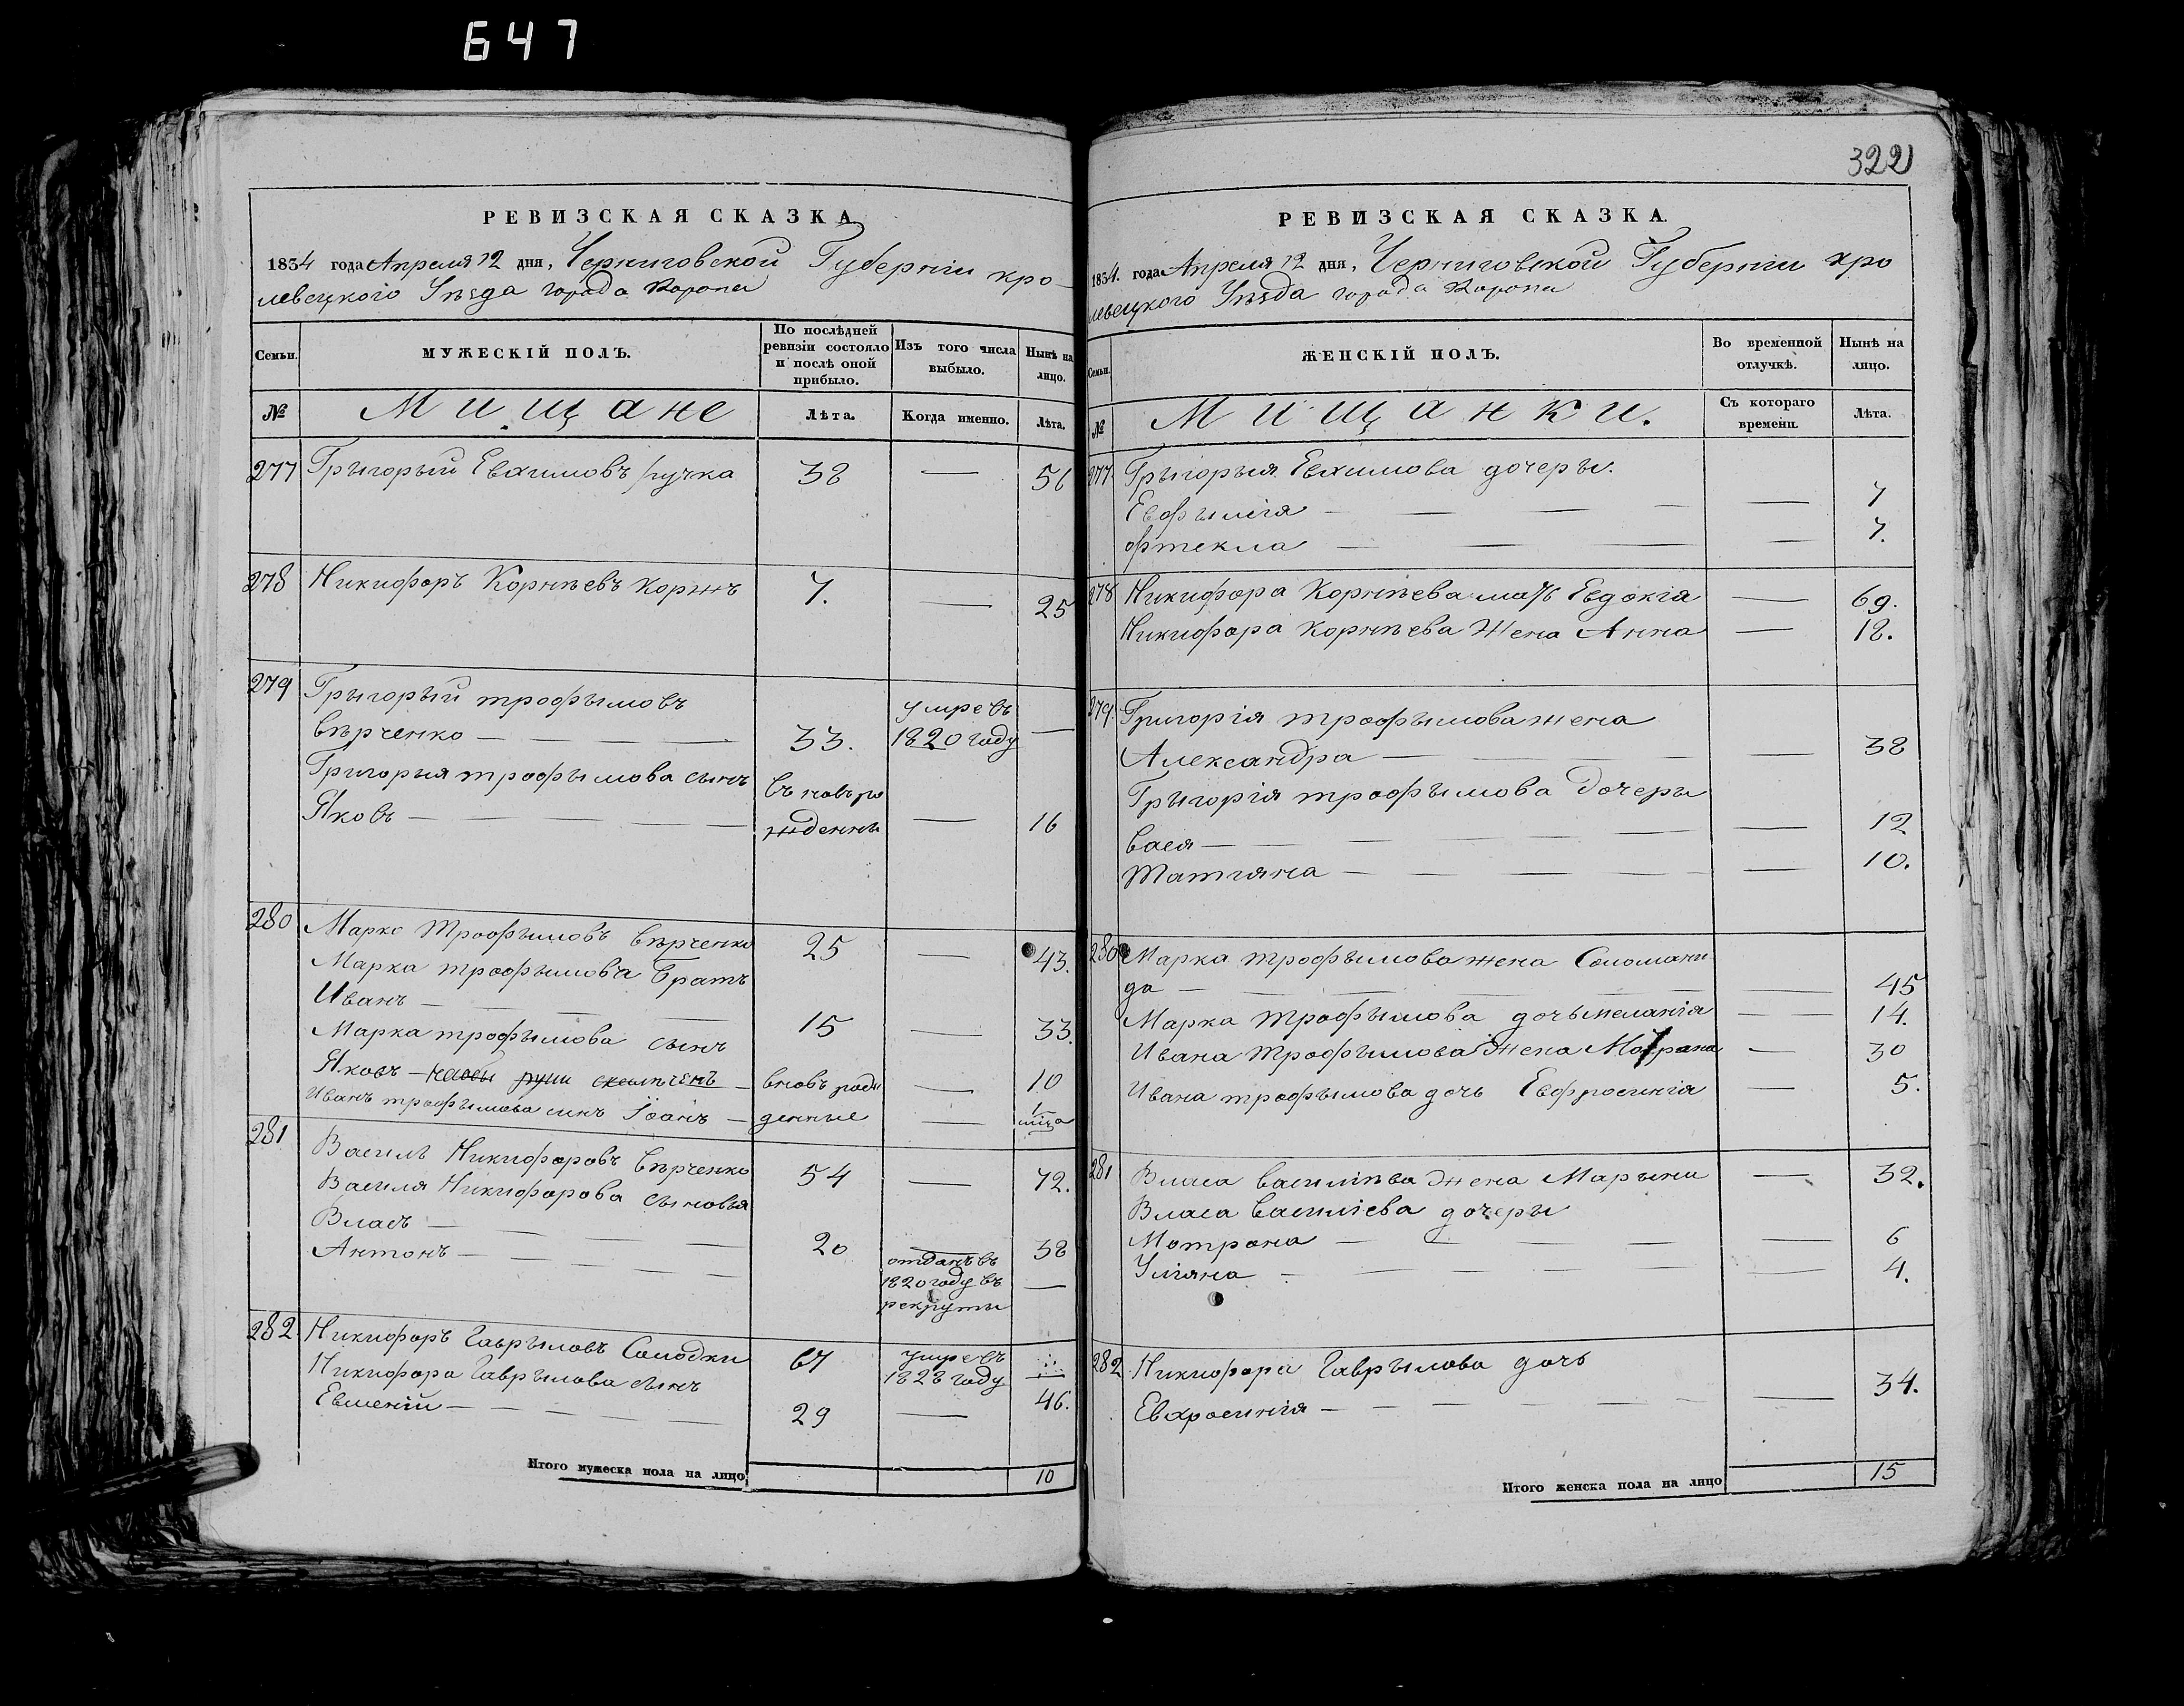 647
322
РЕВИЗСКАЯ СКАЗКА
1834 года Апреля 12 дня, Черниговской Губернiи кро-
левецкого Уѣзда города Коропа
Семьи.
МУЖЕСКІЙ ПОЛЪ.
По послѣдней ревизіи состояло и послѣ оной прибыло.
Изъ того числа выбыло.
Нынѣ на лицо.
№
Мищане
Лѣта.
Когда именно.
Лѣта.
277 Грыгорый Евхимовъ 38 — 56
278 Никифоръ Корнѣевъ Коржъ 7. — 25
279 Грыгорый трофымовъ
вѣрченко — — — 33. умре въ 1820 году —
Григорыя трофымова сынъ въ новь ро
Яковъ — — — — жденнъ — 16
280 Марко Трофымовъ вѣрченко 25 — 43.
Марка трофымова Братъ
Иванъ — — — 15 — 33.
Марка трофымова сынъ
Яковъ — вновь роди — 10
Иванъ трофымова сынъ Iоанъ — денные —
281 Василь Никифоровъ вѣрченко 54 — 72.
Василя Никифорова сыновья
Власъ — — — 20 — 38
Антонъ — — — отданъ въ —
1820 году въ
рекруты
282. Никифоръ Гаврыловъ Солодки 67 умре въ
1828 году
Никифора Гаврылова сынъ
Евменiй — — — — 29 — 46.
Итого мужеска пола на лицо 10
РЕВИЗСКАЯ СКАЗКА.
1834. года Апреля 12 дня, Черниговской Губернiи кро
левецкого Уѣзда города Коропа
Семьи.
ЖЕНСКІЙ ПОЛЪ.
Во временной отлучкѣ.
Нынѣ на лицо.
№
Мищанки.
Съ котораго времени.
Лѣта.
277. Грыгорыя Евхимова дочеры.
Евфымiя — — — — — 7
фтекла — — — — 7.
278 Никифора Корнѣева мать Евдокiя — 69.
Никифора Корнѣева Жена Анна — 18.
279. Григорiя трофымова жена
Александра — — — — 38
Грыгорiя трофымова Дочеры
вася — — — — — 12
Татiяна — — — — — 10.
280 Марка трофымова жена Соломани-
да — — — — — 45
Марка Трофымова дочь меланiя — 14.
Ивана Трофымова Жена Мотрана — 30
Ивана трофымова дочь Евфросинiя — 5.
281 Власа василiѣва Жена Марына — 32.
Власа василiева дочеры
Мотрона — — — — — 6
Улiяна — — — — — 4.
282. Никифора Гаврылова дочь
Евхросинiя — — — — — 34.
Итого женска пола на лицо 15